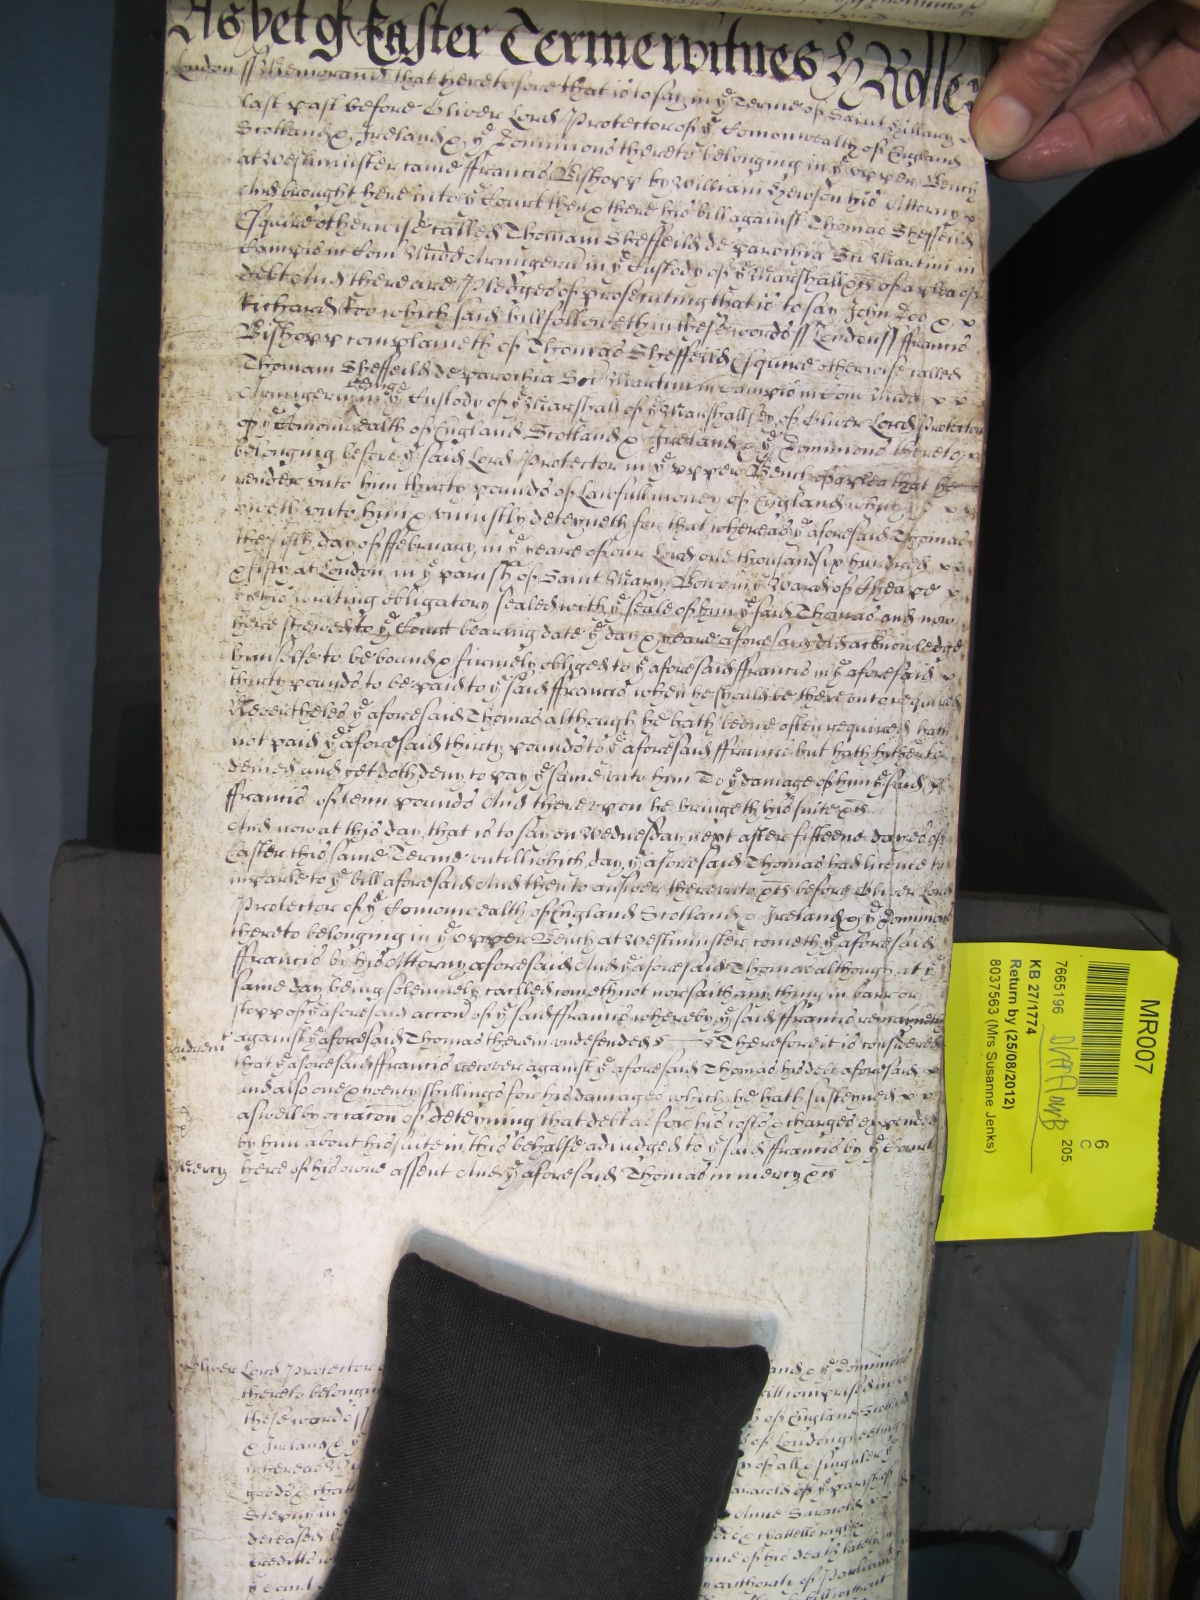 As yet of Easter Terme witnes H Rolle
London ss Memorand that heretofore that is to say in ye Terme of Saint Hillary
last past before Oliver Lord Protector of ye Comonwealth of England
Scotland & Ireland & ye Dominions thereto belonging in ye upper Bench
at Westminster came ffrancis Bishopp by William Hewson his Attorny &
And brought here into ye Court then & there his bill against Thomas Sheffeild
Esquire otherwise called Thomam Sheffeild de parochia Sci Martini in
Campis in Com Midd Armigerū in ye Custody of ye Marshall &c of a plea of
debt And there are Pledges of prosecuting that is to say John Doo &
Richard Roo which said bill followeth in these words ss London ss ffrancis
Bishopp complaineth of Thomas Sheffeild Esquire otherwise called
Thomam Sheffeild de parochia Sci Martini in Campis in Com Midd
Armigerū being in ye Custody of ye Marshall of ye Marshallsey of Oliver Lord Protector
of ye Comonwealth of England Scotland & Ireland & ye Dominions thereto
belonging before ye said Lord Protector in ye upper Bench of a plea that he
render unto him thirty pounds of Lawfull money of England which
oweth unto him & uniustly deteyneth for that whereas ye aforesaid Thomas
the fifth day of ffebruary in ye yeare of our Lord one thousand six hundred
& fifty at London in ye parish of Saint Mary Bowe in ye Ward of Cheape
by his writing obligatory sealed with ye seale of him ye said Thomas and now
here shewed to ye Court bearing date ye day & yeare aforesaid did acknowledge
himselfe to be bound & firmely obliged to ye aforesaid ffrancis in ye aforesaid
thirty pounds to be paid to ye said ffrancis when he should be thereunto required
Neverthelesse ye aforesaid Thomas although he hath beene often required hath
not paid ye aforesaid thirty pounds to ye aforesaid ffrancis but hath hitherto
denied and yet doth deny to pay ye same unto him To ye damage of him ye said
ffrancis of tenn pounds And thereupon he bringeth his suite &c
And now at this day that is to say on Wednesday next after fifteene dayes of
Easter this same Terme untill which day ye aforesaid Thomas had licence to
imparle to ye bill aforesaid And then to answer thereunto &c before Oliver Lord
Protector of ye Comonwealth of England Scotland & Ireland & ye Dominions
thereto belonging in ye upper Bench at Westminster cometh ye aforesaid
ffrancis by his Attorny aforesaid And ye aforesaid Thomas although at ye
same day being solemnely called cometh not nor saith any thing in barr or
stopp of ye aforesaid accon of ye said ffrancis whereby ye said ffrancis remayneth
against ye aforesaid Thomas therein undefended Therefore it is considered
Judgment
that ye aforesaid ffrancis recover against ye aforesaid Thomas his debt aforesaid
and also one & twenty shillings for his damages which he hath susteyned
aswell by occacon of deteyning that debt as for his costs & charges expended
by him about his suite in this behalfe adiudged to ye said ffrancis by ye Court
Mercy here of his owne assent And ye aforesaid Thomas in mercy &c
Oliver Lord Protector and & ye Dominions
thereto belonging comprised in
these words ss of England Scotland
& Ireland & ye of London greeting
whereas of all & singuler ye
goods & chattells of ye parish of
Stepny in Anne
deceased & chattells
creditts of his death
ye Court authority of Parliament
MR007
7665196 6 C 205.
KB 27/1774
Return by (25/08/2012)
8037563 (Mrs Susanne Jenks)